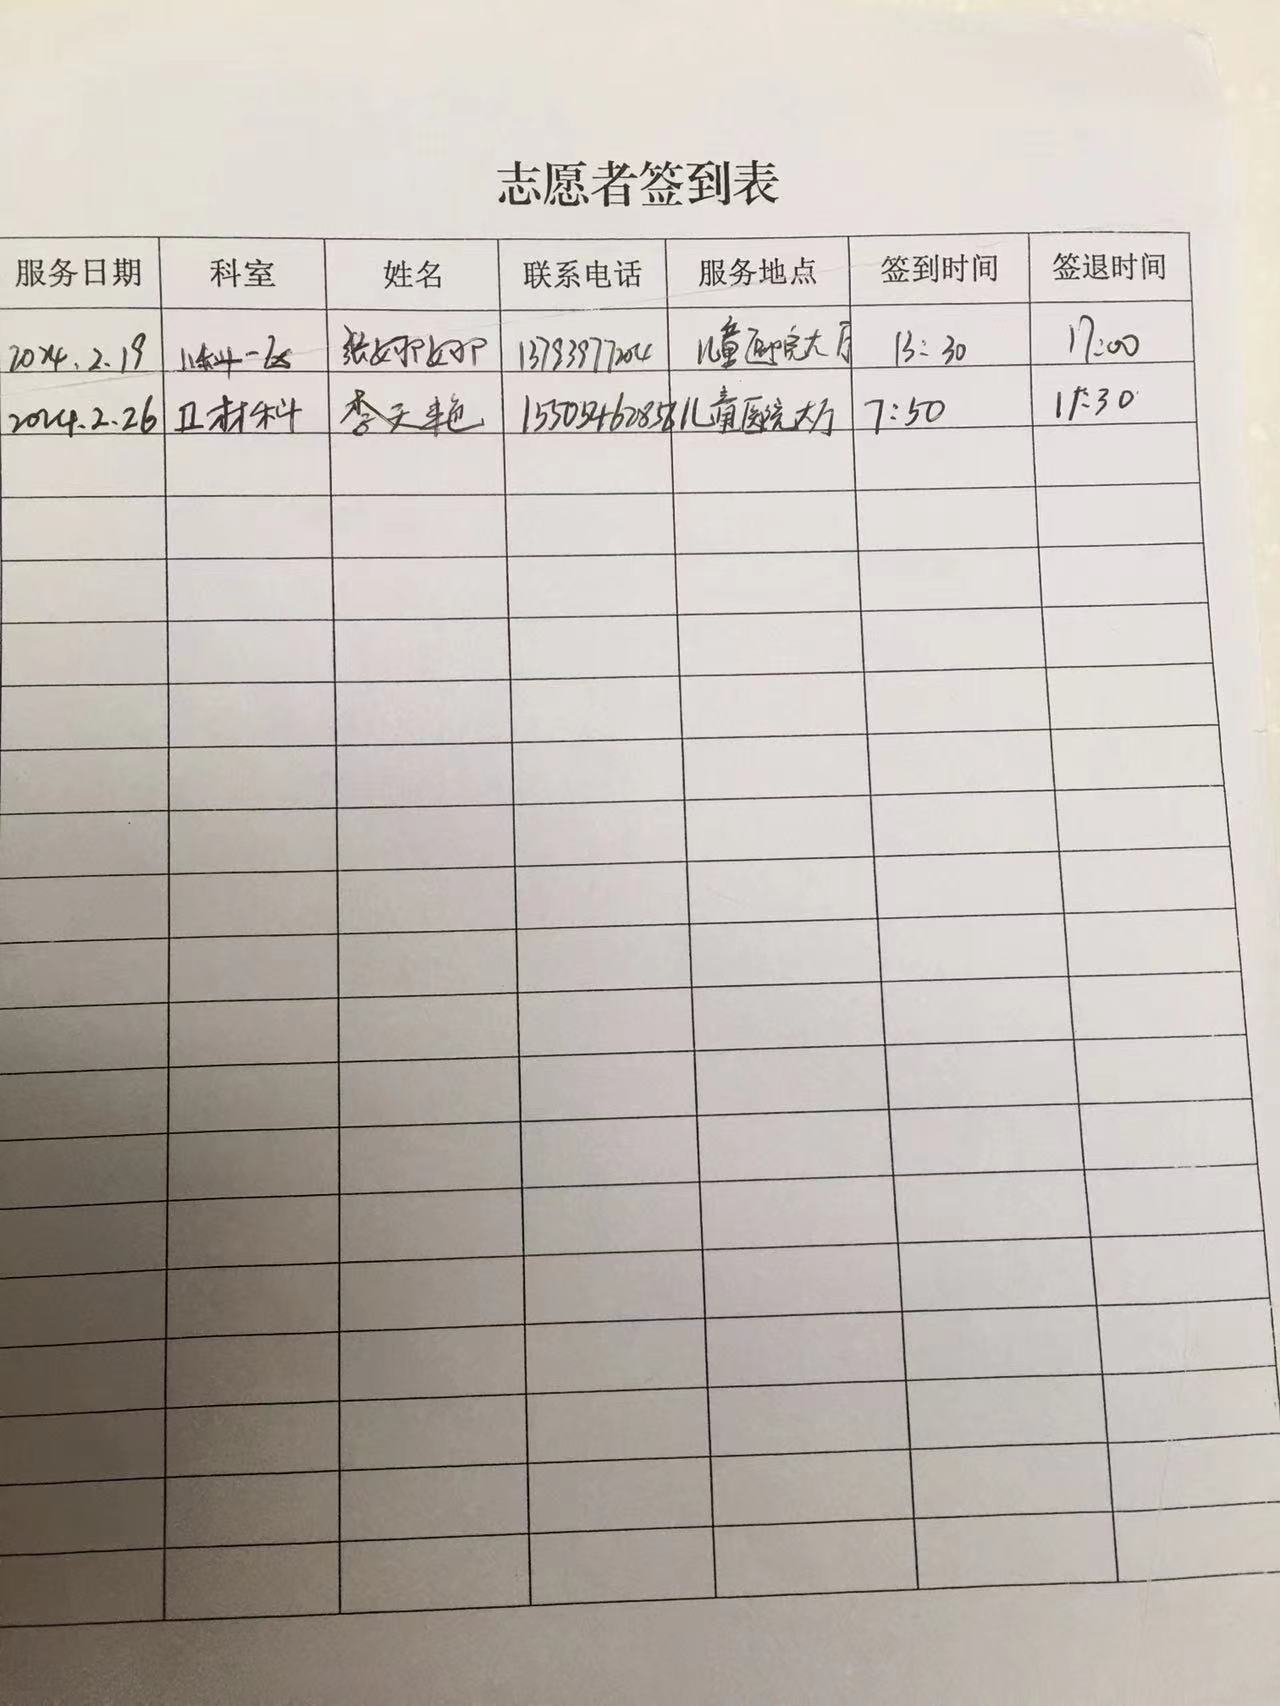 志愿者签到表
服务日期 科室 姓名 联系电话 服务地点 签到时间 签退时间
2024.2.19 儿科一区 张 13793977204 儿童医院大厅 13:30 17:00
2024.2.26 卫材科 李天艳 儿童医院大厅 7:50 11:30